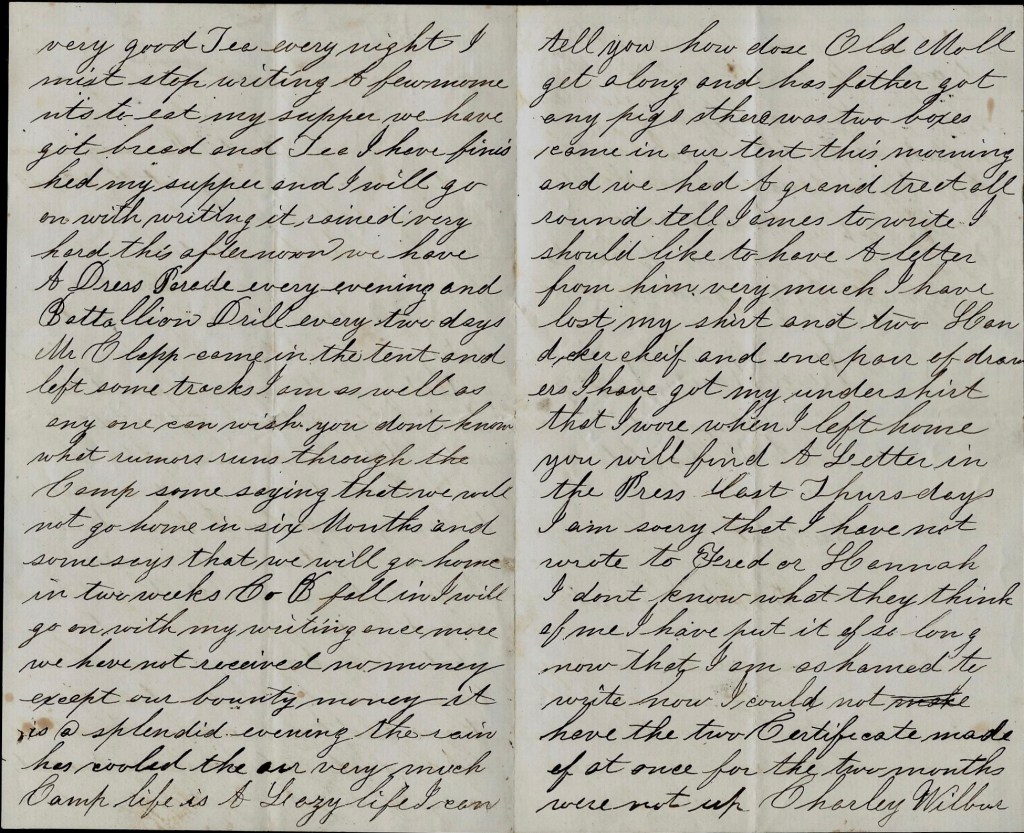 very good Tea every night I
must stop writing A few mome
nts to eat my supper we have
got bread and Tea I have finis
hed my supper and I will go
on with writing it rained very
hard this afternoon we have
A Dress Parade every evening and
Battallion Drill every two days
Mr Clapp came in the tent and
left some tracks I am as well as
any one can wish you dont know
what rumors runs through the
Camp some saying that we will
not go home in six Months and
some says that we will go home
in two weeks Co B fall in I will
go on with my writing once more
we have not received no money
except our bounty money it
is a splendid evening the rain
has cooled the air very much
Camp life is A Leazy life I can
tell you how dose Old Moll
get along and has father got
any pigs there was two boxes
came in our tent this morning
and we had A grand treet all
round tell James to write I
should like to have A letter
from him very much I have
lost my shirt and two Han
dkercheif and one pair of draw
ers I have got my undershirt
that I wore when I left home
you will find A Letter in
the Press last Thursdays
I am sorry that I have not
wrote to Fred or Hannah
I dont know what they think
of me I have put it of so long
now that I am ashamed to
write now I could not make
have the two Certificate made
of at once for the two months
were not up Charley Wilbur